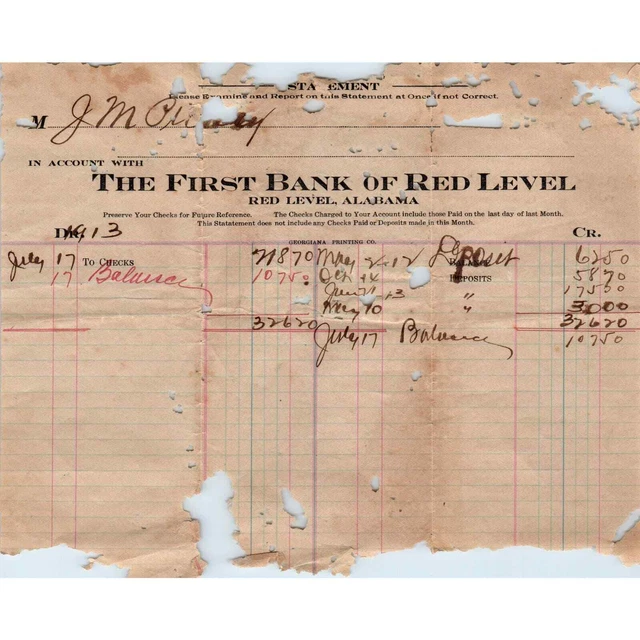 STATEMENT
Please Examine and Report on this Statement at Once if not Correct.
M J M
IN ACCOUNT WITH
THE FIRST BANK OF RED LEVEL
RED LEVEL, ALABAMA
Preserve Your Checks for Future Reference. The Checks Charged to Your Account include those Paid on the last day of last Month.
This Statement does not include any Checks Paid or Deposits made in this Month.
1913 CR.
GEORGIANA PRINTING CO.
July 17 TO CHECKS 21870 May 2-12 Deposit 6250
17 Balance 10750 Oct 24 DEPOSITS 5870
13 " 17500
May 10 " 3000
32620 32620
July 17 Balance 10750